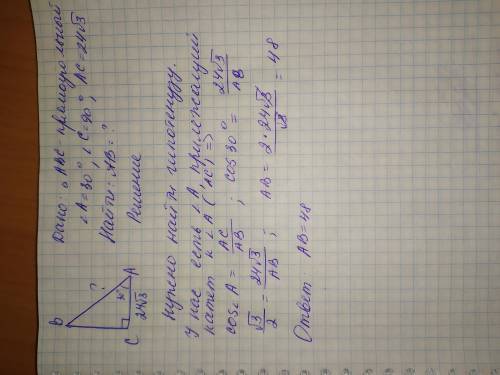 Дано: △ABC - прямоугольный
∠A=30°, ∠C=90°, AC=24√3
Найти: AB=?
B
?
30°
A
C
24√3
Решение
Нужно найти гипотенузу.
У нас есть ∠A прилежащий
катет к ∠A ("AC") =>
cos∠A = AC/AB ; cos 30° = 24√3/AB
√3/2 = 24√3/AB ; AB = 2·24√3/√3 = 48
Ответ: AB=48